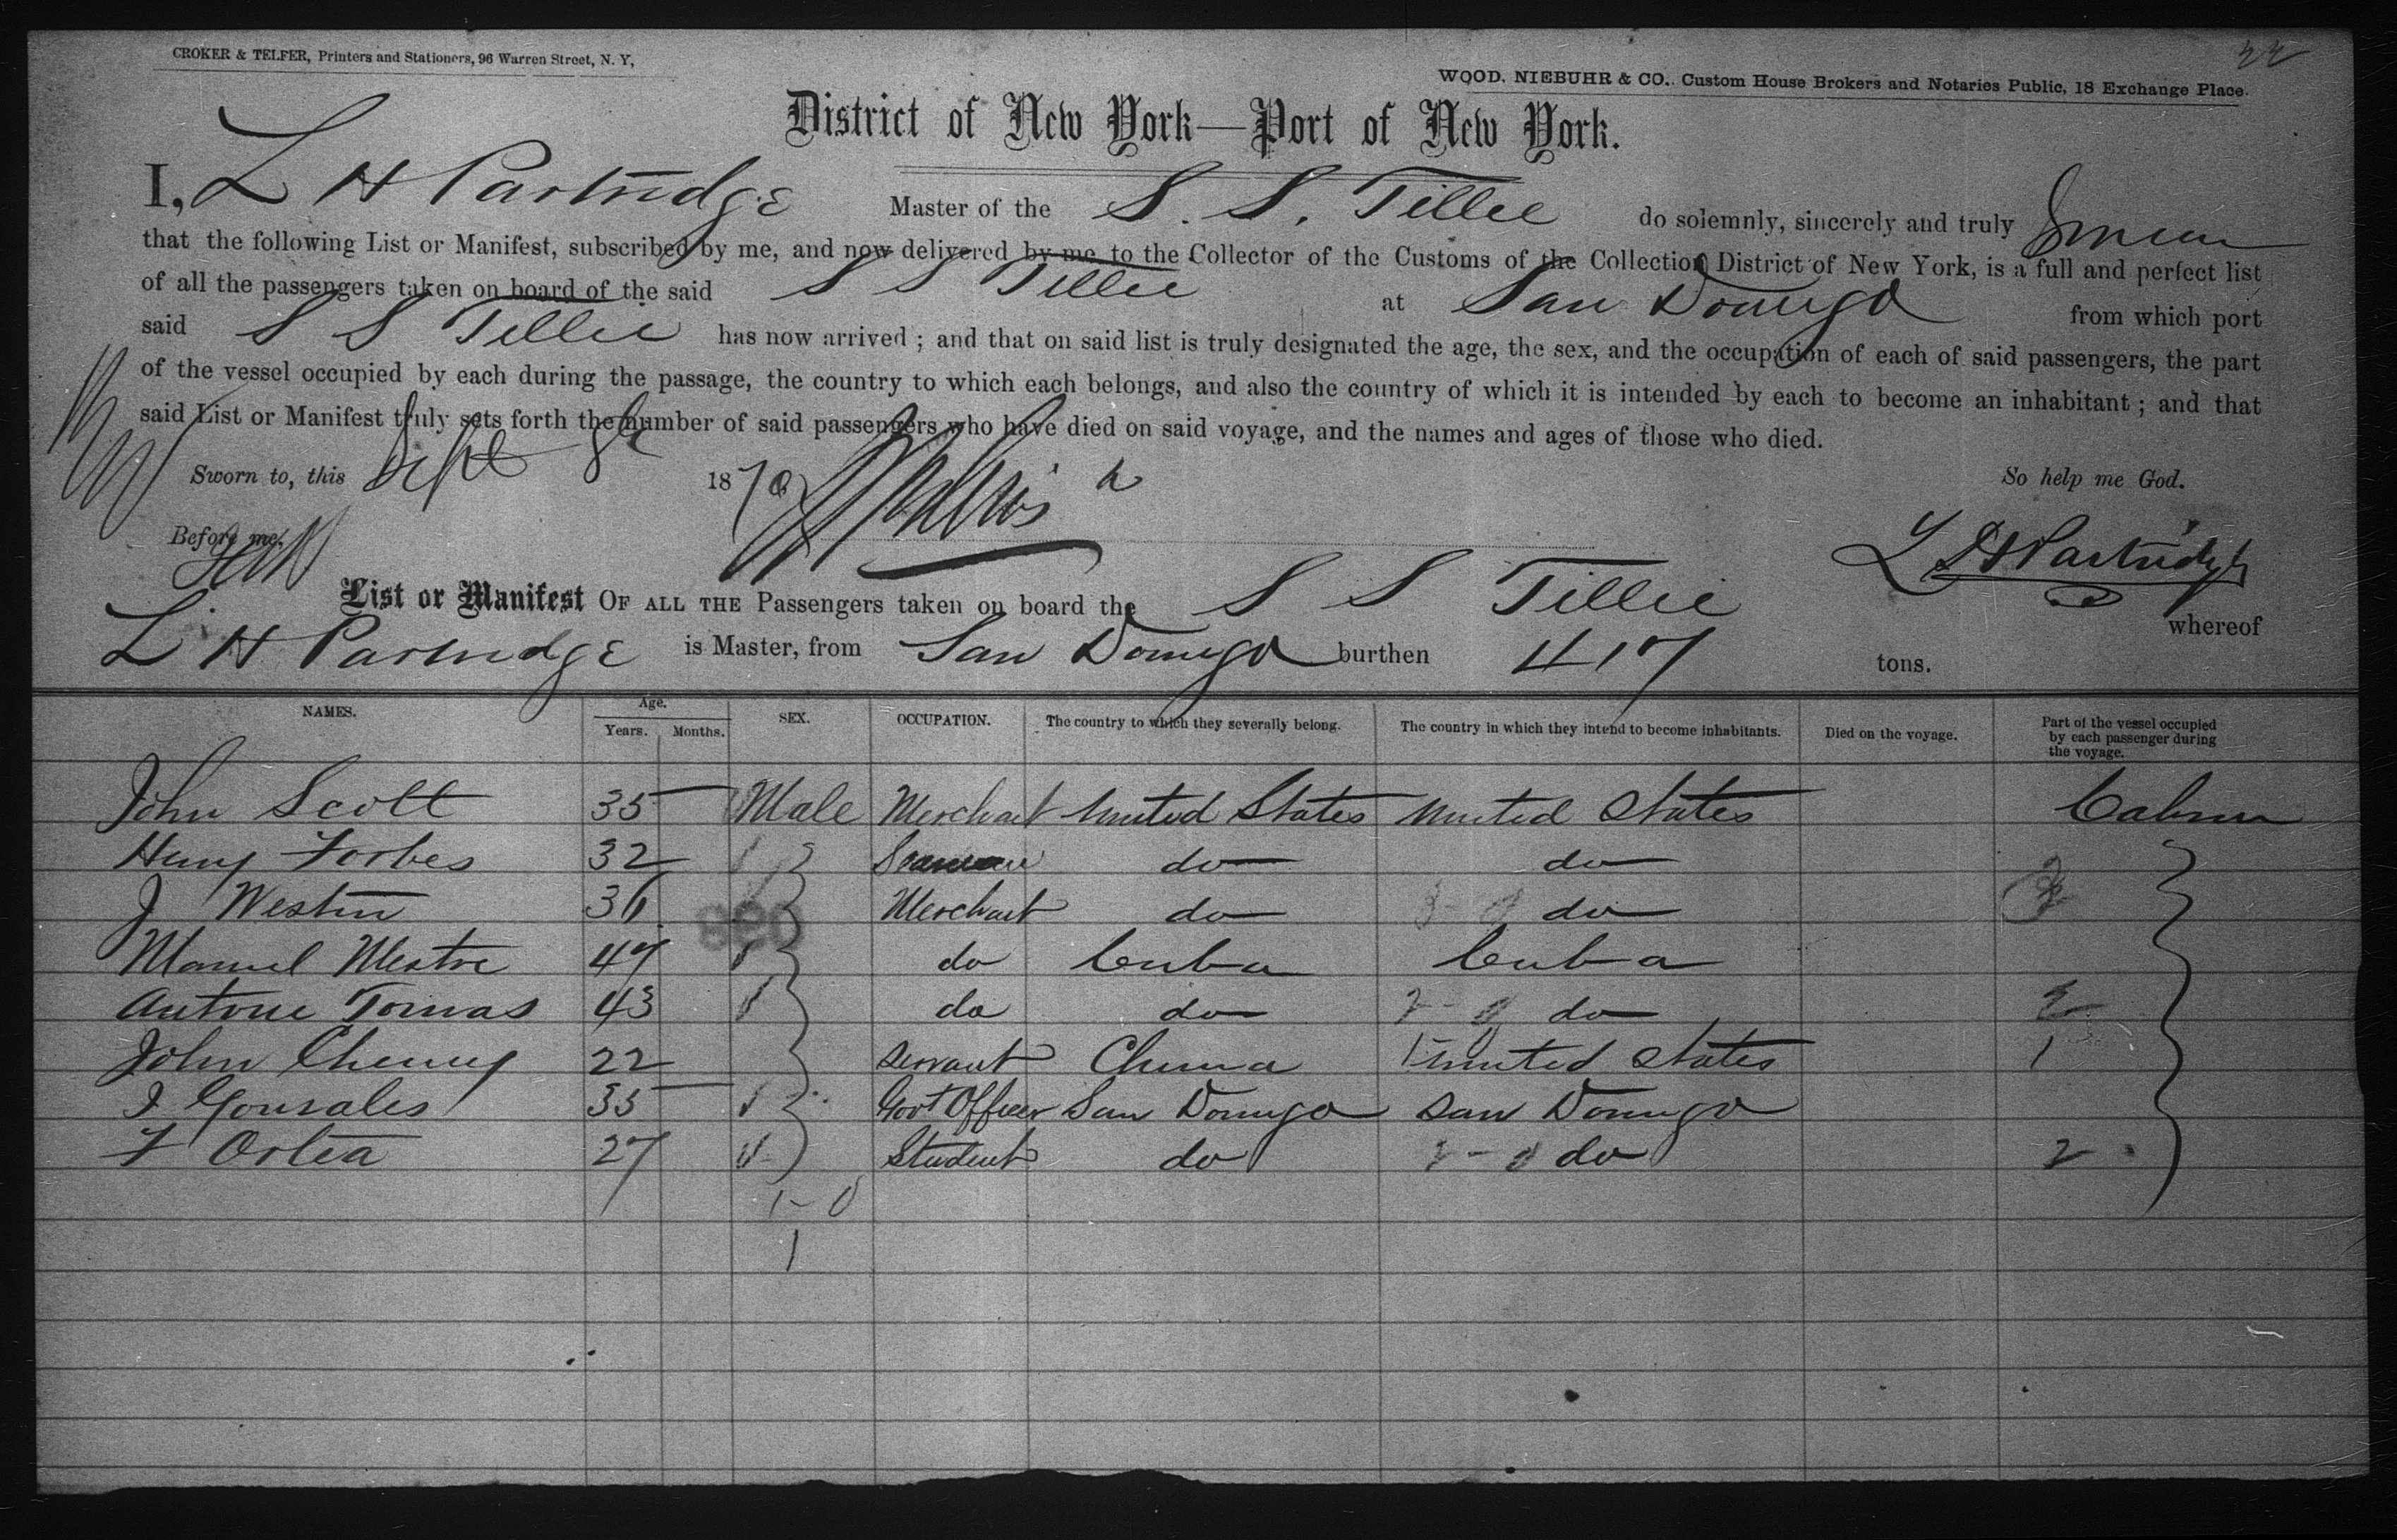 22
CROKER & TELFER, Printers and Stationers, 96 Warren Street, N. Y,
WOOD, NIEBUHR & CO., Custom House Brokers and Notaries Public, 18 Exchange Place.
District of New York—Port of New York.
I, L H Partridge Master of the S. S. Tillie do solemnly, sincerely and truly Swear
that the following List or Manifest, subscribed by me, and now delivered by me to the Collector of the Customs of the Collection District of New York, is a full and perfect list
of all the passengers taken on board of the said S S Tillie at San Domingo from which port
said S S Tillie has now arrived ; and that on said list is truly designated the age, the sex, and the occupation of each of said passengers, the part
of the vessel occupied by each during the passage, the country to which each belongs, and also the country of which it is intended by each to become an inhabitant ; and that
said List or Manifest truly sets forth the number of said passengers who have died on said voyage, and the names and ages of those who died.
Sworn to, this Sept 8 187 So help me God.
Before me, L H Partridge
List or Manifest OF ALL THE Passengers taken on board the S S Tillie whereof
L H Partridge is Master, from San Domingo burthen 417 tons.
NAMES. Age. Years. Months. SEX. OCCUPATION. The country to which they severally belong. The country in which they intend to become inhabitants. Died on the voyage. Part of the vessel occupied by each passenger during the voyage.
John Scott 35 Male Merchant United States United States Cabin
Henry Forbes 32 Seaman do do
J Westin 36 Merchant do do
Manuel Mestre 47 do Cuba Cuba
Antone Tomas 43 do do 2- do 2
John Cheney 22 Servant China United States 1
J Gonsales 35 Govt Officer San Domingo San Domingo
F Ortea 27 Student do 2- do 2
1-0
1